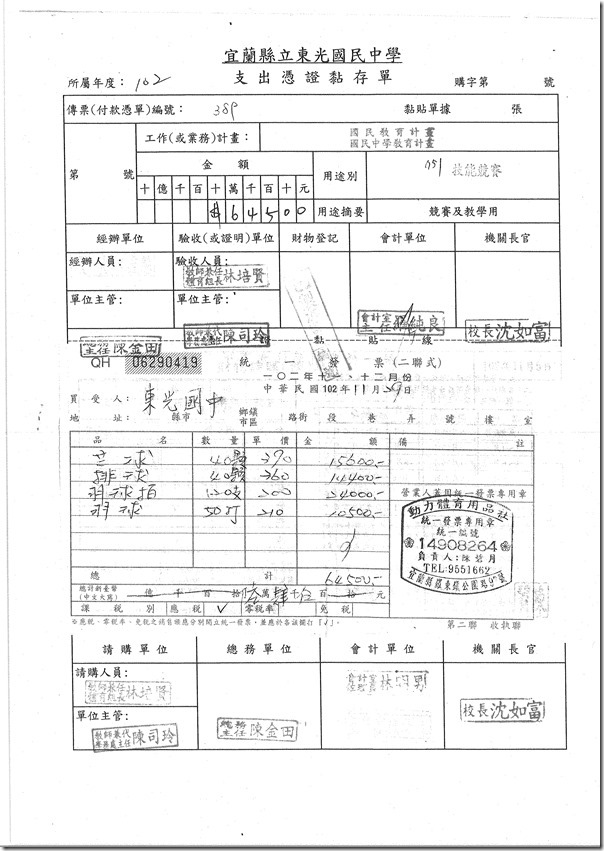 宜蘭縣立東光國民中學
支出憑證黏存單
所屬年度：102 購字第 號
傳票(付款憑單)編號： 389 黏貼單據 張
第 號
工作(或業務)計畫：
國民教育計畫
國民中學教育計畫
金額
用途別
051 技能競賽
十億千百十萬千百十元
$64500
用途摘要
競賽及教學用
經辦單位 驗收(或證明)單位 財物登記 會計單位 機關長官
經辦人員： 驗收人員：
教師兼任
體育組長 林培賢
單位主管： 單位主管：
總務
主任 陳金田
教師兼代
學務處主任 陳司玲
會計室
主任
純良
校長 沈如富
黏貼線
QH 06290419 統一發票(二聯式)
一〇二年 十一、十二月份
中華民國102年11月29日
買受人：東光國中
地址： 縣市 鄉鎮市區 路街 段 巷 弄 號 樓 室
品名 數量 單價 金額 備註
球 40 390 15600.-
排球 40 360 14400.-
羽球拍 120支 200 24000.-
羽球 50打 210 10500.-
營業人蓋用統一發票專用章
動力體育用品社
統一發票專用章
統一編號
14908264
負責人：陳 月
TEL:9551662
宜蘭縣羅東鎮公園路 號
總計 64500.-
總計新臺幣
(中文大寫) 億 千 百 拾 陸萬 肆千 伍百 拾 元
課稅別 應稅 ✓ 零稅率 免稅
※應稅、零稅率、免稅之銷售額應分別開立統一發票，並應於各該欄打「✓」。
第二聯 收執聯
請購單位 總務單位 會計單位 機關長官
請購人員：
教師兼任
體育組長 林培賢
單位主管：
教師兼代
學務處主任 陳司玲
總務
主任 陳金田
會計室
林明男
校長 沈如富